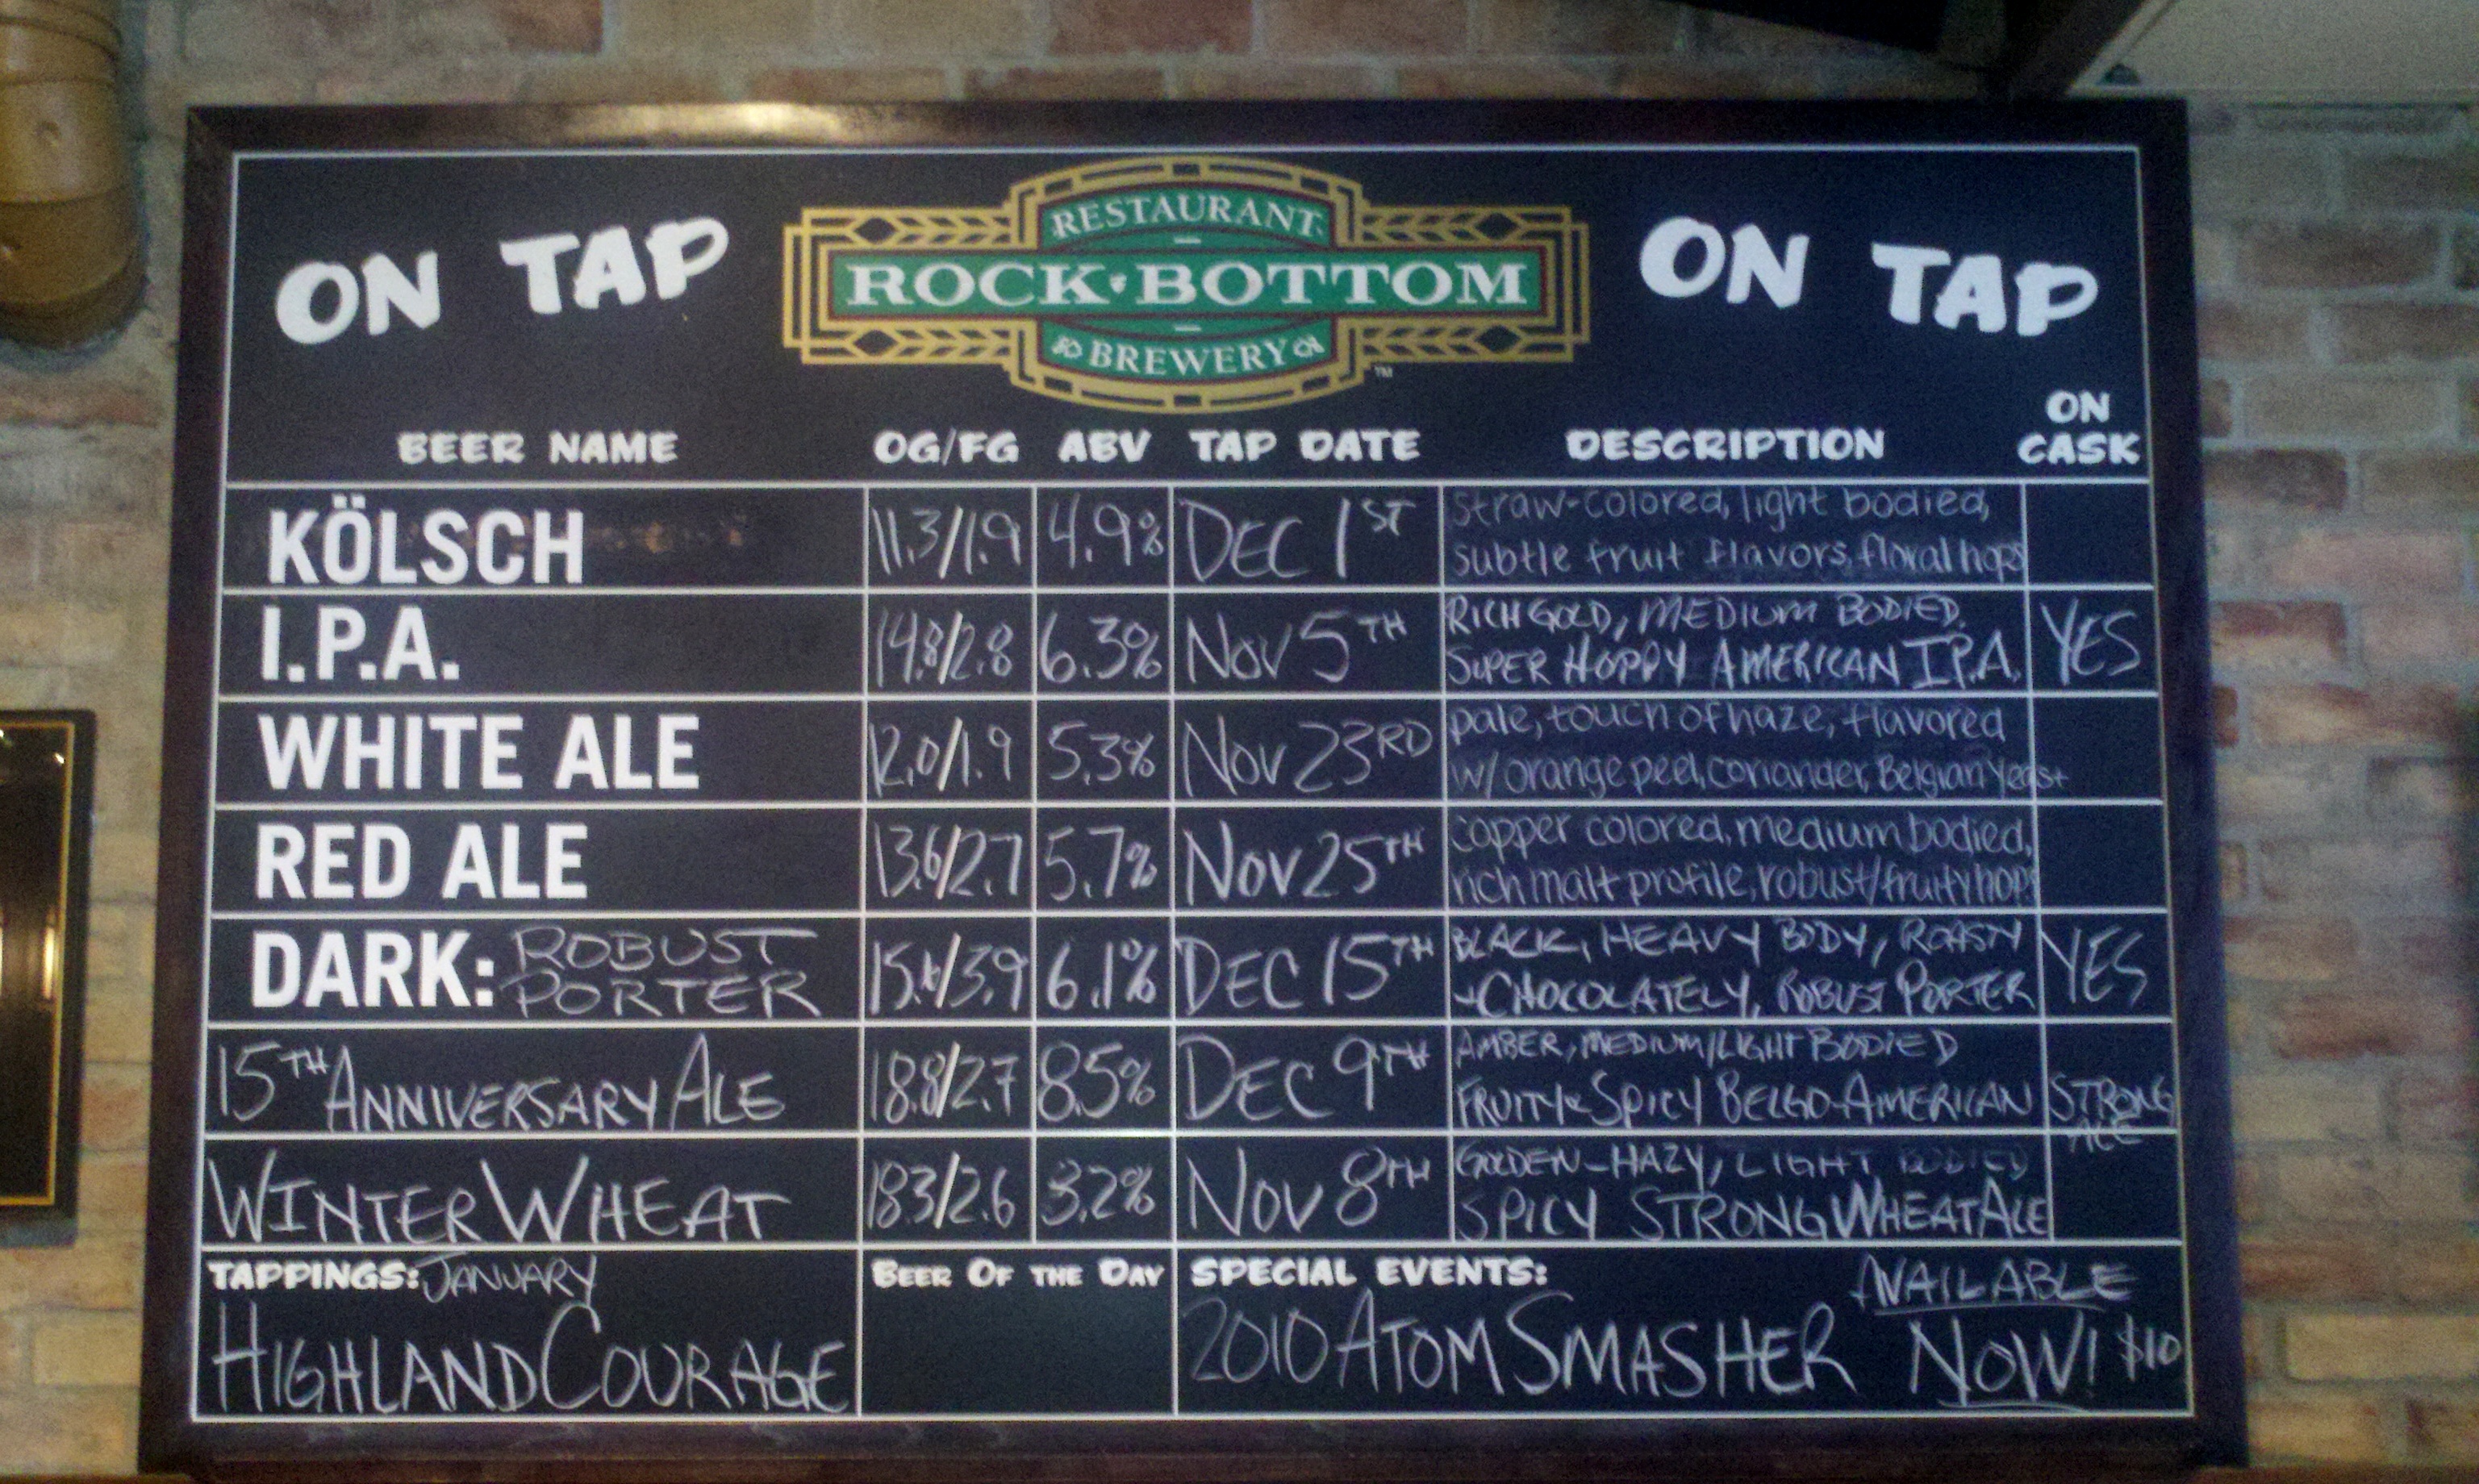 ON TAP
RESTAURANT
ROCK BOTTOM
BREWERY
TM
ON TAP
BEER NAME OG/FG ABV TAP DATE DESCRIPTION ON CASK
KÖLSCH 11.3/1.9 4.9% DEC 1ST straw-colored, light bodied,
subtle fruit flavors, floral hops
I.P.A. 14.8/2.8 6.3% NOV 5TH RICH GOLD, MEDIUM BODIED.
SUPER HOPPY AMERICAN I.P.A. YES
WHITE ALE 12.0/1.9 5.3% NOV 23RD pale, touch of haze, flavored
w/ orange peel, coriander, Belgian Yeast
RED ALE 13.6/2.7 5.7% NOV 25TH copper colored, medium bodied,
rich malt profile, robust/fruity hops
DARK: ROBUST
PORTER /3.9 6.1% DEC 15TH BLACK, HEAVY BODY, ROASTY
+CHOCOLATELY, ROBUST PORTER YES
15TH ANNIVERSARY ALE 18.8/2.7 8.5% DEC 9TH AMBER, MEDIUM/LIGHT BODIED
FRUITY & SPICY BELGO-AMERICAN STRONG
ALE
WINTER WHEAT 18.3/2.6 NOV 8TH GOLDEN-HAZY, LIGHT BODIED
SPICY STRONG WHEAT ALE
TAPPINGS: JANUARY
HIGHLAND COURAGE
BEER OF THE DAY
SPECIAL EVENTS: AVAILABLE
2010 ATOM SMASHER NOW! $10